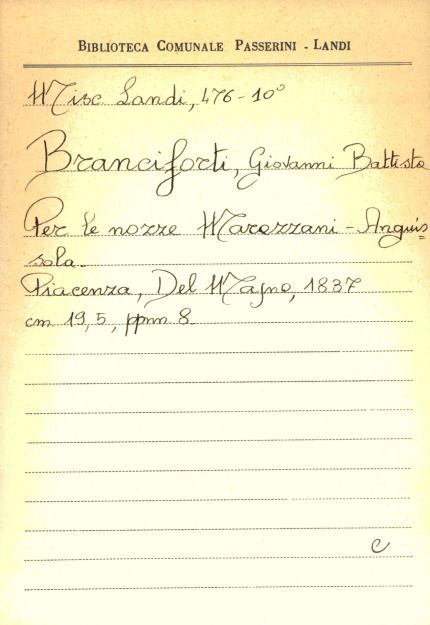 BIBLIOTECA COMUNALE PASSERINI - LANDI
Misc. Landi, 476-10°
Branciforti, Giovanni Battista
Per le nozze Marazzani - Anguis=
sola.
Piacenza, Del Majno, 1837
cm 19,5, ppnn 8
C